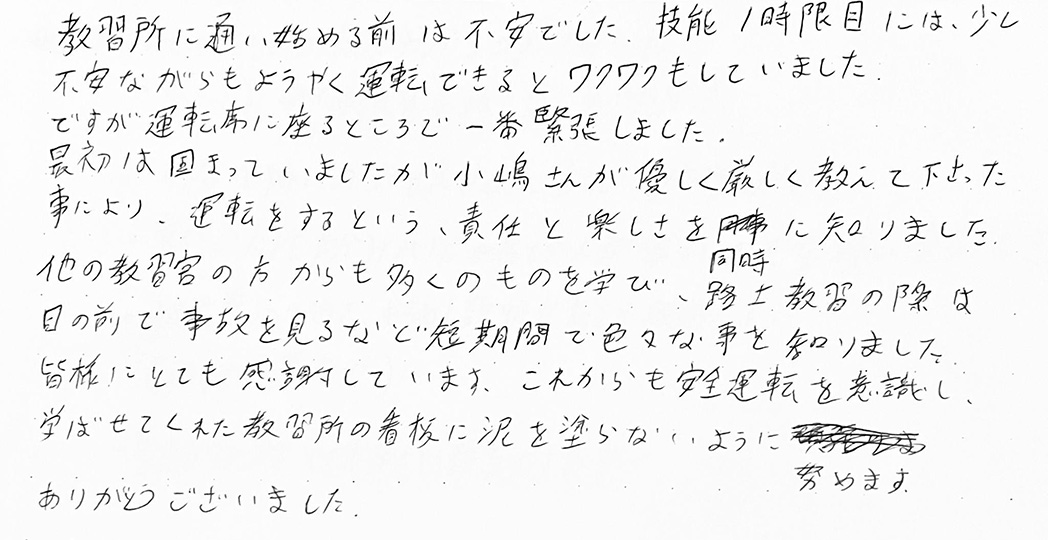 教習所に通い始める前は不安でした。技能1時限目には、少し
不安ながらもようやく運転できるとワクワクもしていました。
ですが運転席に座るところで一番緊張しました。
最初は固まっていましたが小嶋さんが優しく厳しく教えて下さった
事により、運転をするという、責任と楽しさを同時に知りました。
他の教習官の方からも多くのものを学び、路上教習の際は
目の前で事故を見るなど短期間で色々な事を知りました。
皆様にとても感謝しています。これからも安全運転を意識し、
学ばせてくれた教習所の看板に泥を塗らないように
努めます。
ありがとうございました。